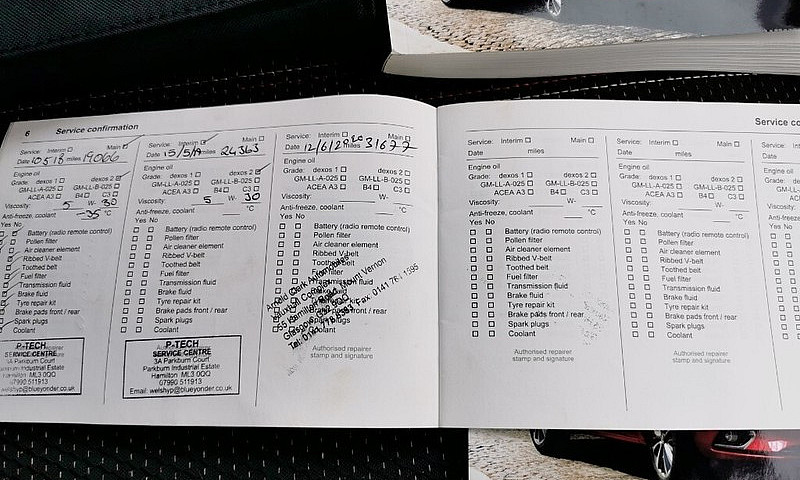 6 Service confirmation
Service: Interim Main
Date 10518 miles 19066
Engine oil
Grade: dexos 1 dexos 2
GM-LL-A-025 GM-LL-B-025
ACEA A3 B4 C3
Viscosity: 5 W- 30
Anti-freeze, coolant -35 °C
Yes No
Battery (radio remote control)
Pollen filter
Air cleaner element
Ribbed V-belt
Toothed belt
Fuel filter
Transmission fluid
Brake fluid
Tyre repair kit
Brake pads front / rear
Spark plugs
Coolant
P-TECH
SERVICE CENTRE
3A Parkburn Court
Parkburn Industrial Estate
Hamilton ML3 0QQ
07990 511913
welshyp@blueyonder.co.uk
Service: Interim Main
Date 15/5/19 miles 24363
Engine oil
Grade: dexos 1 dexos 2
GM-LL-A-025 GM-LL-B-025
ACEA A3 B4 C3
Viscosity: 5 W- 30
Anti-freeze, coolant °C
Yes No
Battery (radio remote control)
Pollen filter
Air cleaner element
Ribbed V-belt
Toothed belt
Fuel filter
Transmission fluid
Brake fluid
Tyre repair kit
Brake pads front / rear
Spark plugs
Coolant
P-TECH
SERVICE CENTRE
3A Parkburn Court
Parkburn Industrial Estate
Hamilton ML3 0QQ
07990 511913
Email: welshyp@blueyonder.co.uk
Service: Interim Main
Date 12/6/20 miles 31677
Engine oil
Grade: dexos 1 dexos 2
GM-LL-A-025 GM-LL-B-025
ACEA A3 B4 C3
Viscosity: W-
Anti-freeze, coolant °C
Yes No
Battery (radio remote control)
Pollen filter
Air cleaner element
Ribbed V-belt
Toothed belt
Fuel filter
Transmission fluid
Brake fluid
Tyre repair kit
Brake pads front / rear
Spark plugs
Coolant
Clark
Mount Vernon
Tel: 0141
Fax: 0141
Authorised repairer
stamp and signature
Service: Interim Main
Date miles
Engine oil
Grade: dexos 1 dexos 2
GM-LL-A-025 GM-LL-B-025
ACEA A3 B4 C3
Viscosity: W-
Anti-freeze, coolant °C
Yes No
Battery (radio remote control)
Pollen filter
Air cleaner element
Ribbed V-belt
Toothed belt
Fuel filter
Transmission fluid
Brake fluid
Tyre repair kit
Brake pads front / rear
Spark plugs
Coolant
Authorised repairer
stamp and signature
Service co
Service: Interim Main
Date miles
Engine oil
Grade: dexos 1 dexos 2
GM-LL-A-025 GM-LL-B-025
ACEA A3 B4 C3
Viscosity: W-
Anti-freeze, coolant °C
Yes No
Battery (radio remote control)
Pollen filter
Air cleaner element
Ribbed V-belt
Toothed belt
Fuel filter
Transmission fluid
Brake fluid
Tyre repair kit
Brake pads front / rear
Spark plugs
Coolant
Authorised repairer
stamp and signature